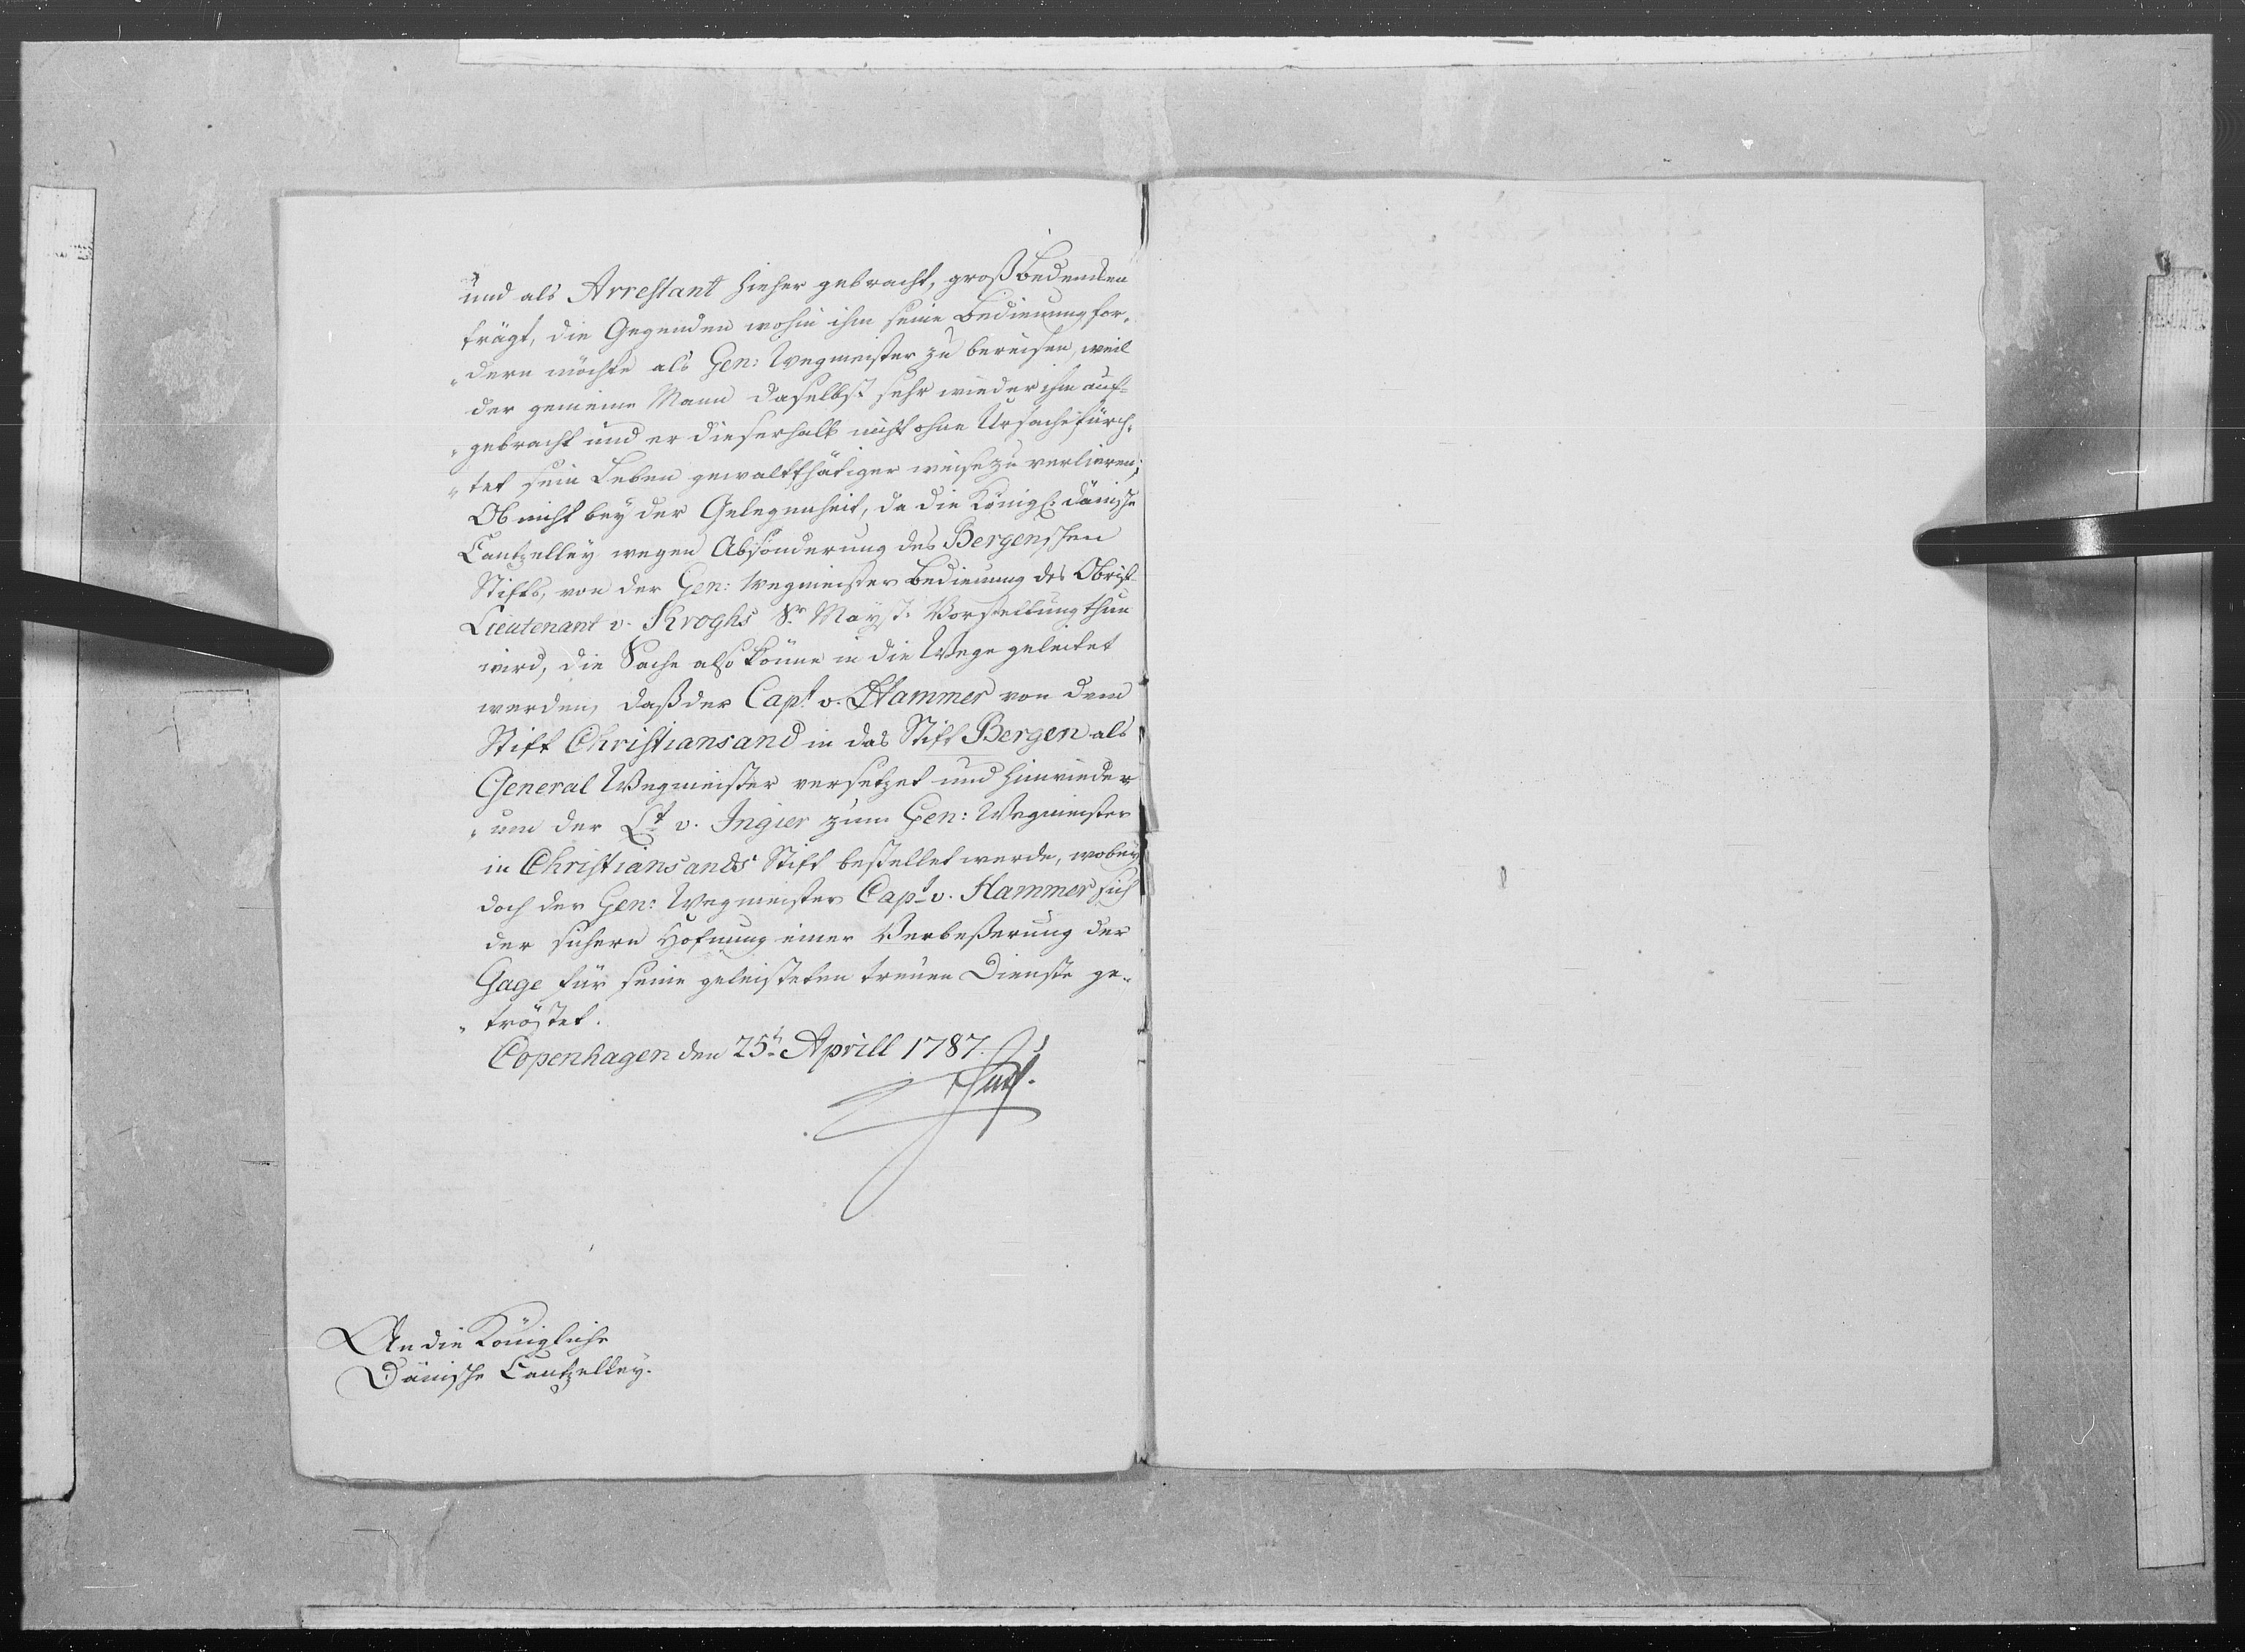 und als Arrestant hieher gebracht, groß bedencken
trägt, die Gegenden wohin ihm seine Bedienung for„
„dern möchte als Gen: Wegmeister zu bereisen, weil
der gemeine Mann daselbst sehr wieder ihm auf„
„gebracht und er dieserhalb nicht ohne Ursache fürch„
„tet sein Leben gewaltthätiger weise zu verlieren;
Ob nicht bey der Gelegenheit, da die Königl: Dänische
Cantzelley wegen Absonderung des Bergenschen
Stifts, von der Gen: Wegmeister Bedienung des Obrist
Lieutenant v. Kroghs Sr Mayst: Vorstellung thun
wird, die Sache also könne in die Wege geleitet
werden, daß der Capt v. Hammer von dem
Stift Christiansand in das Stift Bergen als
General Wegmeister versetzet und hinwieder
„um der Lt v. Ingier zum Gen: Wegmeister
in Christiansands Stift bestellet werde, wobey
doch der Gen: Wegmeister Capt v. Hammer sich
der sichern Hofnung einer Verbeßerung der
Gage für seine geleisteten treuen Dienste ge„
„tröstet.
Copenhagen den 25t Aprill 1787.
An die Königliche
Dänische Cantzelley.